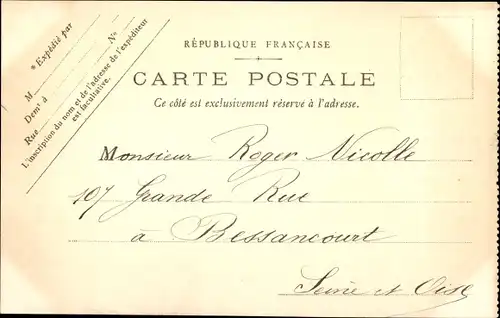 * Expédié par
M
Demt à
Rue
No
L'inscription du nom et de l'adresse de l'expéditeur
est facultative.
RÉPUBLIQUE FRANÇAISE
CARTE POSTALE
Ce côté est exclusivement réservé à l'adresse.
Monsieur Roger Nicolle
107 Grande Rue
à Bessancourt
Seine et Oise